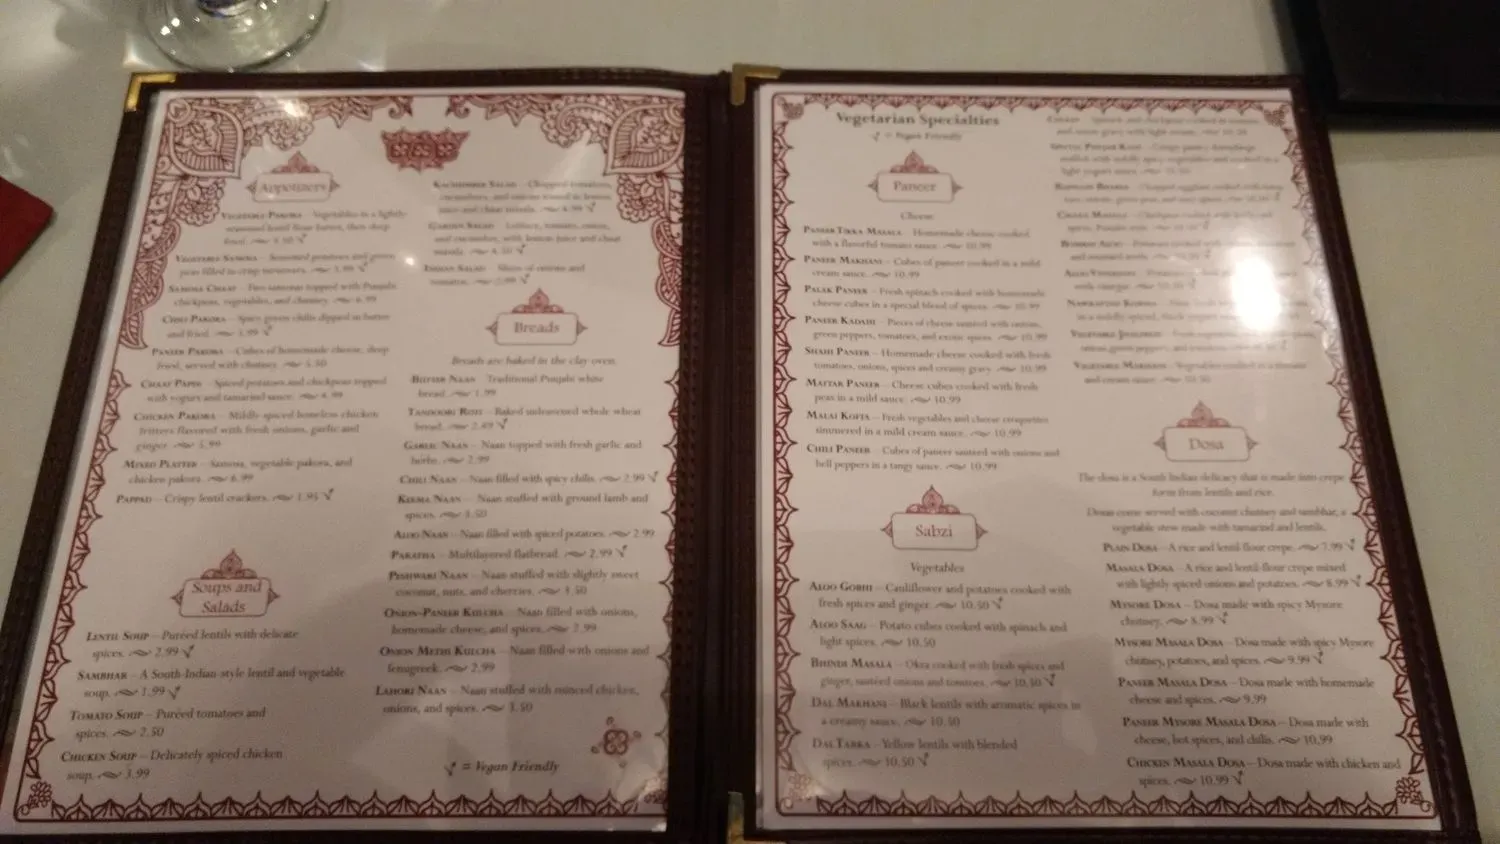 Appetizers
Vegetable Pakora – Vegetables in a lightly
seasoned lentil flour batter, then deep
fried. 3.50
Vegetable Samosa – Seasoned potatoes and green
peas filled in crisp turnovers. 3.99
Samosa Chaat – Two samosas topped with Punjabi
chickpeas, vegetables, and chutney. 6.99
Chili Pakora – Spicy green chilis dipped in batter
and fried. 3.99
Paneer Pakora – Cubes of homemade cheese, deep
fried, served with chutney. 5.50
Chaat Papri – Spiced potatoes and chickpeas topped
with yogurt and tamarind sauce. 4.99
Chicken Pakora – Mildly spiced boneless chicken
fritters flavored with fresh onions, garlic and
ginger. 5.99
Mixed Platter – Samosa, vegetable pakora, and
chicken pakora. 6.99
Pappad – Crispy lentil crackers. 1.95
Soups and
Salads
Lentil Soup – Puréed lentils with delicate
spices. 2.99
Sambhar – A South-Indian-style lentil and vegetable
soup. 1.99
Tomato Soup – Puréed tomatoes and
spices. 2.50
Chicken Soup – Delicately spiced chicken
soup. 3.99
Kachumber Salad – Chopped tomatoes,
cucumbers, and onions tossed in lemon
juice and chaat masala. 4.99
Garden Salad – Lettuce, tomato, onion,
and cucumber, with lemon juice and chaat
masala. 4.50
Indian Salad – Slices of onions and
tomatoes. 2.99
Breads
Breads are baked in the clay oven.
Butter Naan – Traditional Punjabi white
bread. 1.99
Tandoori Roti – Baked unleavened whole wheat
bread. 2.49
Garlic Naan – Naan topped with fresh garlic and
herbs. 2.99
Chili Naan – Naan filled with spicy chilis. 2.99
Keema Naan – Naan stuffed with ground lamb and
spices. 3.50
Aloo Naan – Naan filled with spiced potatoes. 2.99
Paratha – Multilayered flatbread. 2.99
Peshwari Naan – Naan stuffed with slightly sweet
coconut, nuts, and cherries. 3.50
Onion-Paneer Kulcha – Naan filled with onions,
homemade cheese, and spices. 2.99
Onion Methi Kulcha – Naan filled with onions and
fenugreek. 2.99
Lahori Naan – Naan stuffed with minced chicken,
onions, and spices. 3.50
= Vegan Friendly
Vegetarian Specialties
= Vegan Friendly
Paneer
Cheese
Paneer Tikka Masala – Homemade cheese cooked
with a flavorful tomato sauce. 10.99
Paneer Makhani – Cubes of paneer cooked in a mild
cream sauce. 10.99
Palak Paneer – Fresh spinach cooked with homemade
cheese cubes in a special blend of spices. 10.99
Paneer Kadahi – Pieces of cheese sautéed with onions,
green peppers, tomatoes, and exotic spices. 10.99
Shahi Paneer – Homemade cheese cooked with fresh
tomatoes, onions, spices and creamy gravy. 10.99
Mattar Paneer – Cheese cubes cooked with fresh
peas in a mild sauce. 10.99
Malai Kofta – Fresh vegetables and cheese croquettes
simmered in a mild cream sauce. 10.99
Chili Paneer – Cubes of paneer sautéed with onions and
bell peppers in a tangy sauce. 10.99
Sabzi
Vegetables
Aloo Gobhi – Cauliflower and potatoes cooked with
fresh spices and ginger. 10.50
Aloo Saag – Potato cubes cooked with spinach and
light spices. 10.50
Bhindi Masala – Okra cooked with fresh spices and
ginger, sautéed onions and tomatoes. 10.50
Dal Makhani – Black lentils with aromatic spices in
a creamy sauce. 10.50
Dal Tarka – Yellow lentils with blended
spices. 10.50
and onion gravy with light cream. 10.50
light yogurt sauce. 10.50
Chana Masala
Bombay Aloo
Aloo Vindaloo
Navrattan Korma
Vegetable Jalfrezi
Vegetable Makhani – Vegetables cooked in a tomato
and cream sauce. 10.50
Dosa
The dosa is a South Indian delicacy that is made into crepe
form from lentils and rice.
Dosas come served with coconut chutney and sambhar, a
vegetable stew made with tamarind and lentils.
Plain Dosa – A rice and lentil-flour crepe. 7.99
Masala Dosa – A rice and lentil-flour crepe mixed
with lightly spiced onions and potatoes. 8.99
Mysore Dosa – Dosa made with spicy Mysore
chutney. 8.99
Mysore Masala Dosa – Dosa made with spicy Mysore
chutney, potatoes, and spices. 9.99
Paneer Masala Dosa – Dosa made with homemade
cheese and spices. 9.99
Paneer Mysore Masala Dosa – Dosa made with
cheese, hot spices, and chilis. 10.99
Chicken Masala Dosa – Dosa made with chicken and
spices. 10.99